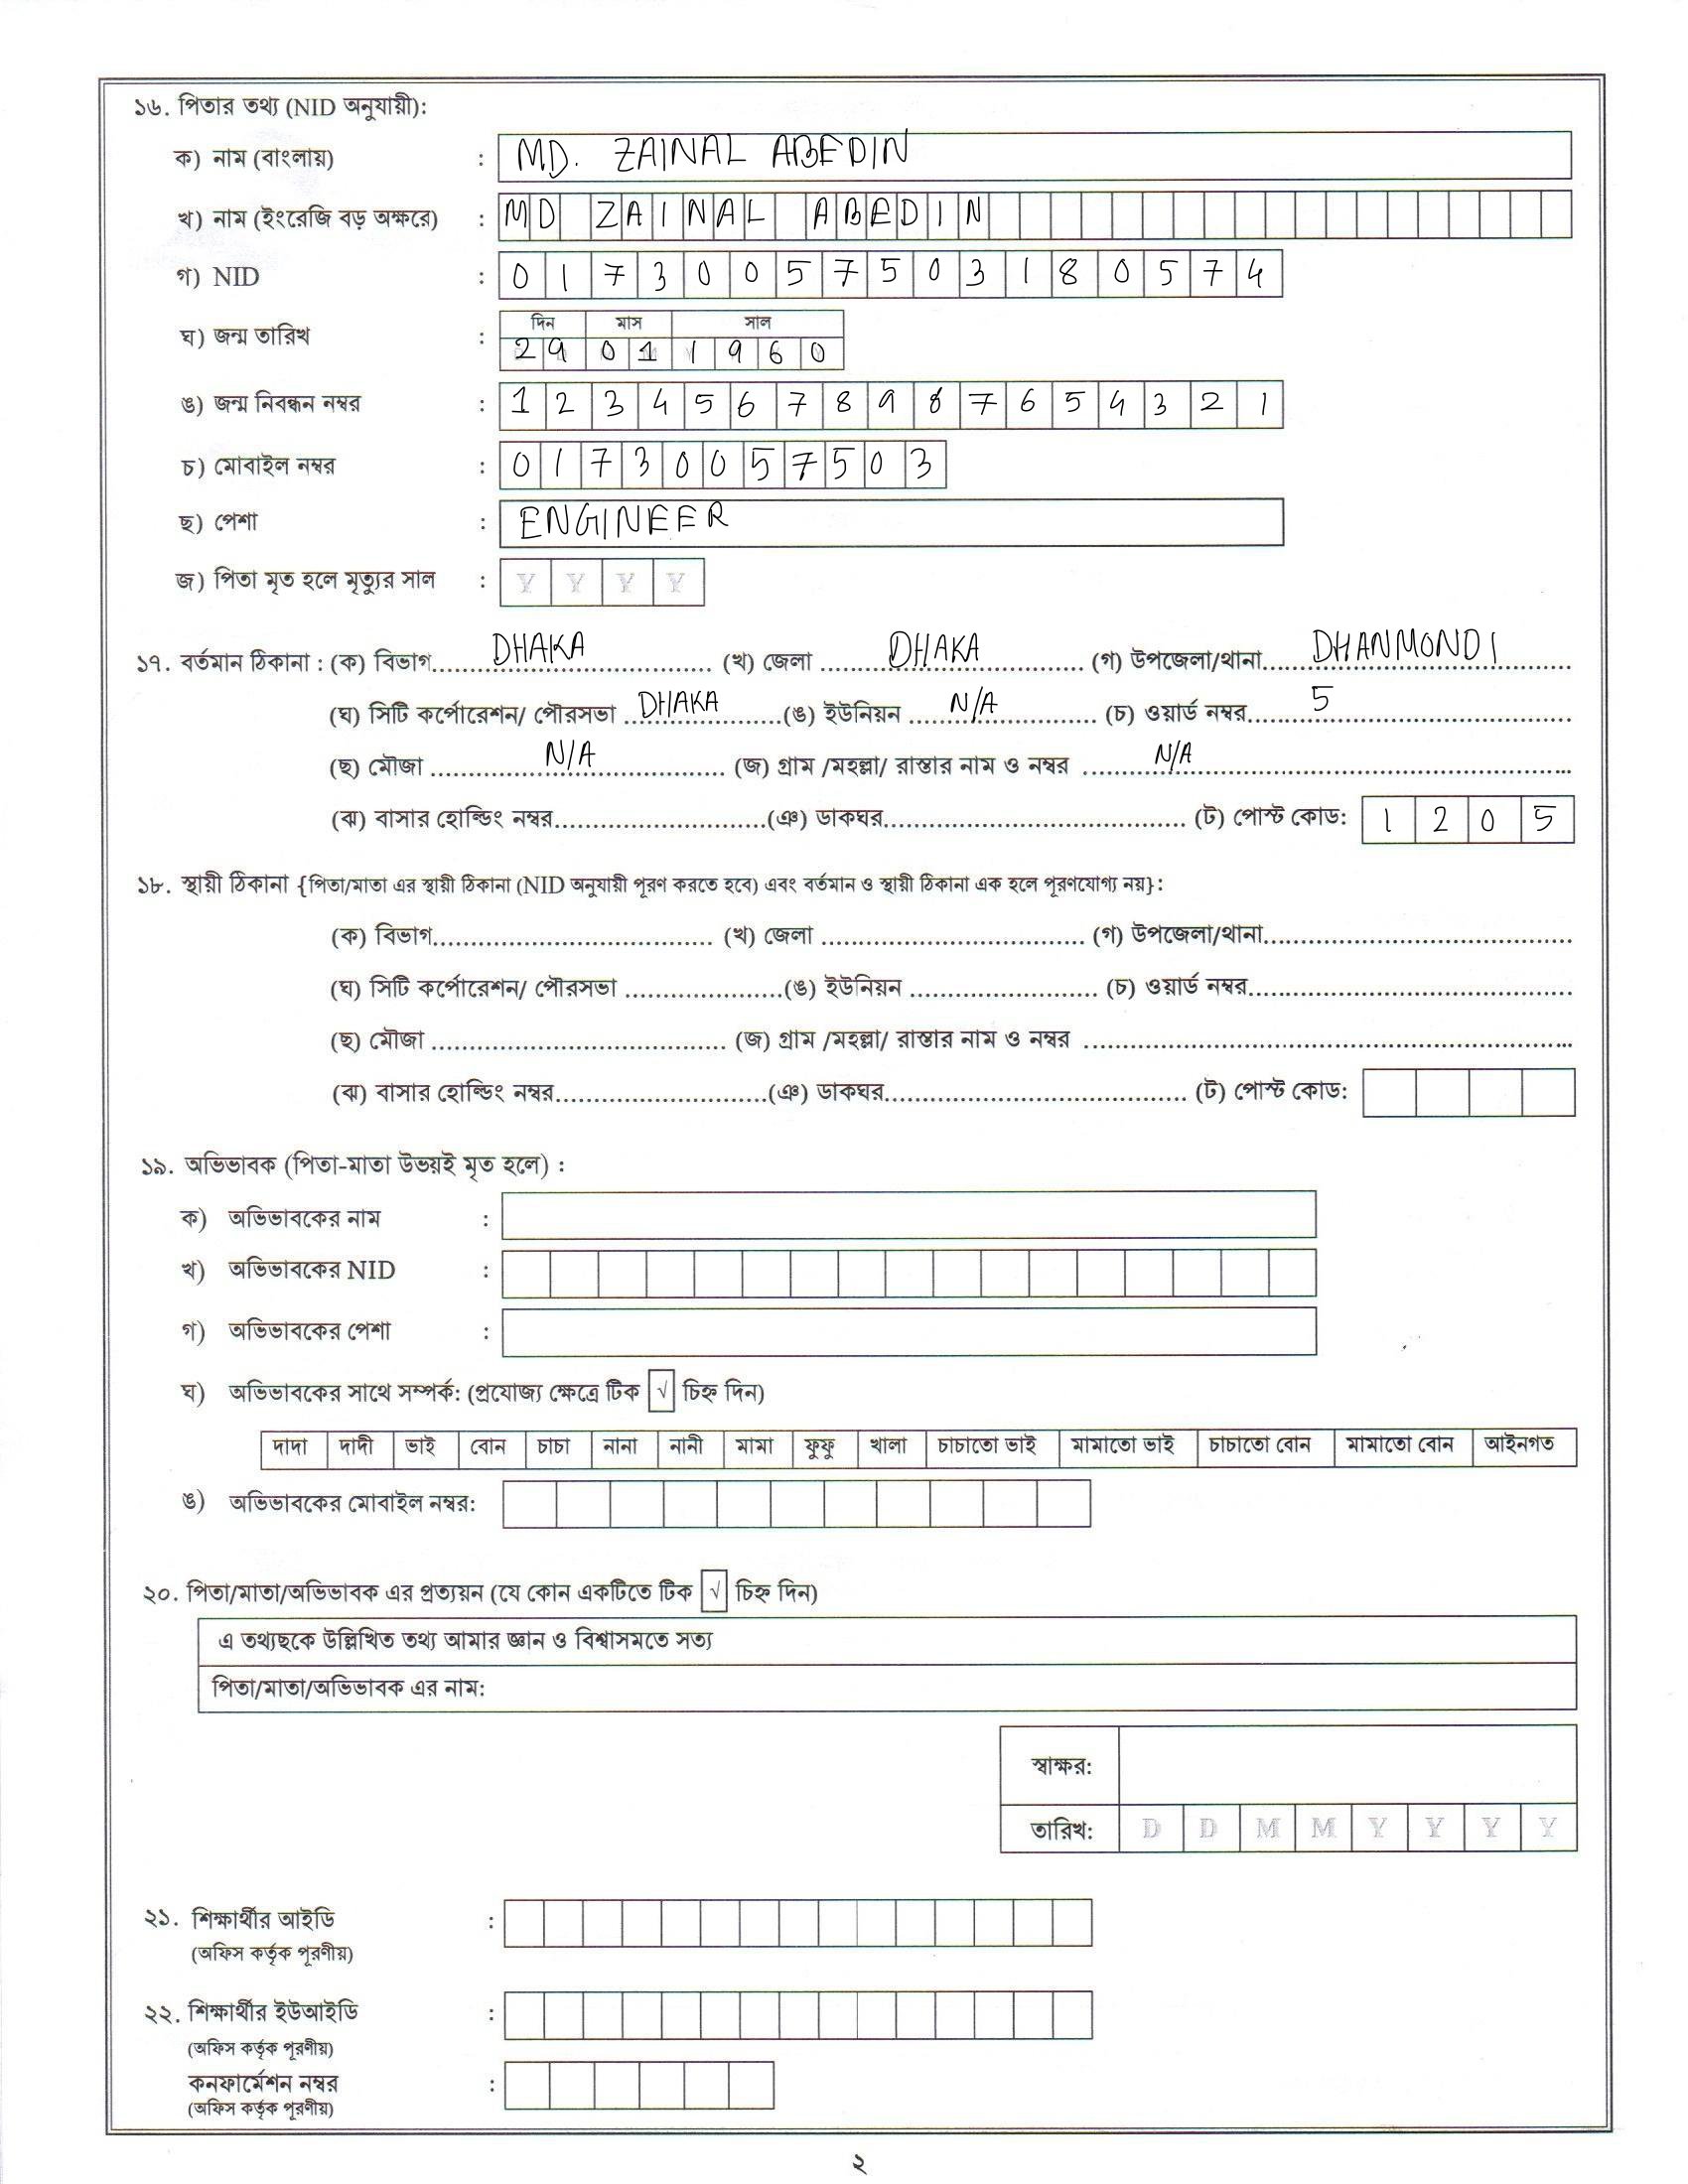 ১৬. পিতার তথ্য (NID অনুযায়ী):
ক) নাম (বাংলায়) : MD. ZAINAL ABEDIN
খ) নাম (ইংরেজি বড় অক্ষরে) : MD ZAINAL ABEDIN
গ) NID : 01730057503180574
দিন মাস সাল
ঘ) জন্ম তারিখ : 29 01 1960
ঙ) জন্ম নিবন্ধন নম্বর : 12345678987654321
চ) মোবাইল নম্বর : 01730057503
ছ) পেশা : ENGINEER
জ) পিতা মৃত হলে মৃত্যুর সাল : Y Y Y Y
১৭. বর্তমান ঠিকানা : (ক) বিভাগ DHAKA (খ) জেলা DHAKA (গ) উপজেলা/থানা DHANMONDI
(ঘ) সিটি কর্পোরেশন/ পৌরসভা DHAKA (ঙ) ইউনিয়ন N/A (চ) ওয়ার্ড নম্বর 5
(ছ) মৌজা N/A (জ) গ্রাম /মহল্লা/ রাস্তার নাম ও নম্বর N/A
(ঝ) বাসার হোল্ডিং নম্বর (ঞ) ডাকঘর (ট) পোস্ট কোড: 1205
১৮. স্থায়ী ঠিকানা {পিতা/মাতা এর স্থায়ী ঠিকানা (NID অনুযায়ী পূরণ করতে হবে) এবং বর্তমান ও স্থায়ী ঠিকানা এক হলে পূরণযোগ্য নয়}:
(ক) বিভাগ (খ) জেলা (গ) উপজেলা/থানা
(ঘ) সিটি কর্পোরেশন/ পৌরসভা (ঙ) ইউনিয়ন (চ) ওয়ার্ড নম্বর
(ছ) মৌজা (জ) গ্রাম /মহল্লা/ রাস্তার নাম ও নম্বর
(ঝ) বাসার হোল্ডিং নম্বর (ঞ) ডাকঘর (ট) পোস্ট কোড:
১৯. অভিভাবক (পিতা-মাতা উভয়ই মৃত হলে) :
ক) অভিভাবকের নাম :
খ) অভিভাবকের NID :
গ) অভিভাবকের পেশা :
ঘ) অভিভাবকের সাথে সম্পর্ক: (প্রযোজ্য ক্ষেত্রে টিক √ চিহ্ন দিন)
দাদা দাদী ভাই বোন চাচা নানা নানী মামা ফুফু খালা চাচাতো ভাই মামাতো ভাই চাচাতো বোন মামাতো বোন আইনগত
ঙ) অভিভাবকের মোবাইল নম্বর:
২০. পিতা/মাতা/অভিভাবক এর প্রত্যয়ন (যে কোন একটিতে টিক √ চিহ্ন দিন)
এ তথ্যছকে উল্লিখিত তথ্য আমার জ্ঞান ও বিশ্বাসমতে সত্য
পিতা/মাতা/অভিভাবক এর নাম:
স্বাক্ষর:
তারিখ: D D M M Y Y Y Y
২১. শিক্ষার্থীর আইডি :
(অফিস কর্তৃক পূরণীয়)
২২. শিক্ষার্থীর ইউআইডি :
(অফিস কর্তৃক পূরণীয়)
কনফার্মেশন নম্বর :
(অফিস কর্তৃক পূরণীয়)
২